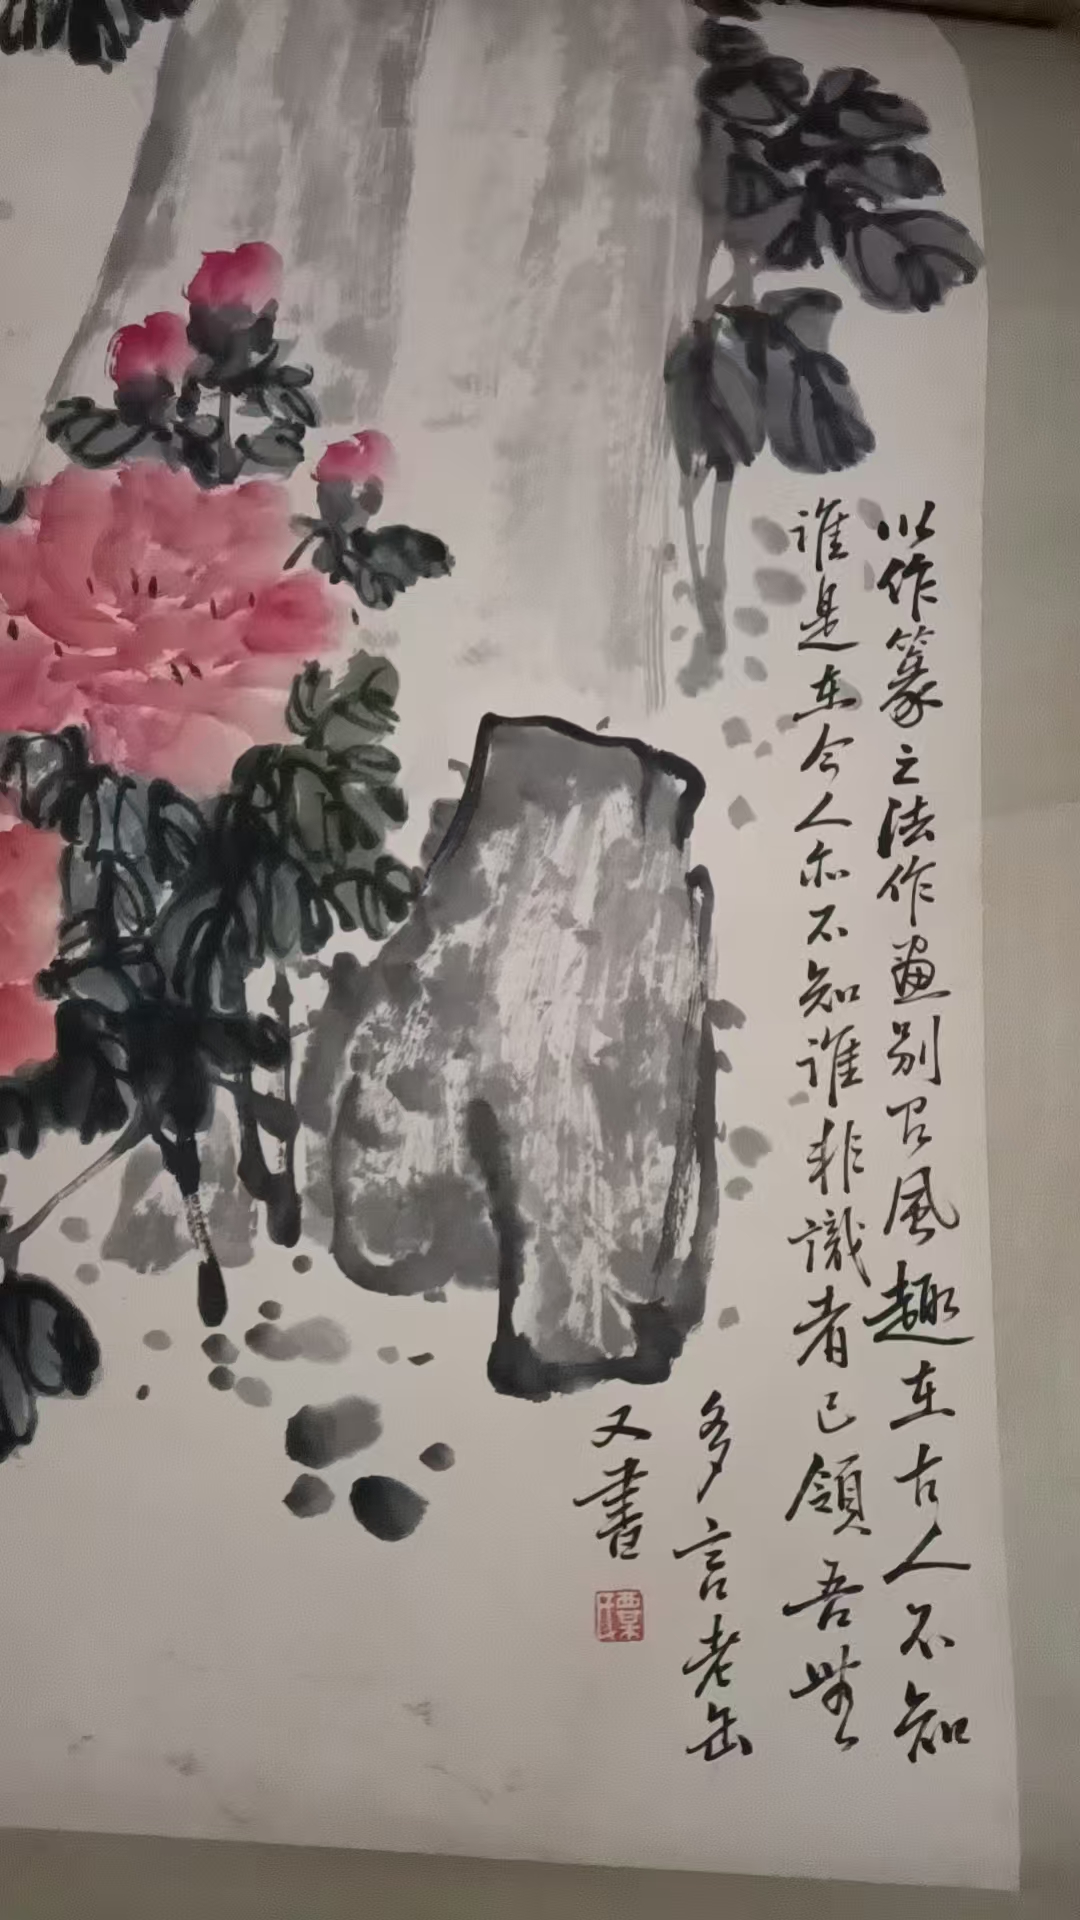 以作篆之法作画别有風趣在古人不知
誰是在今人亦不知誰非識者已領吾無
多言老缶
又書